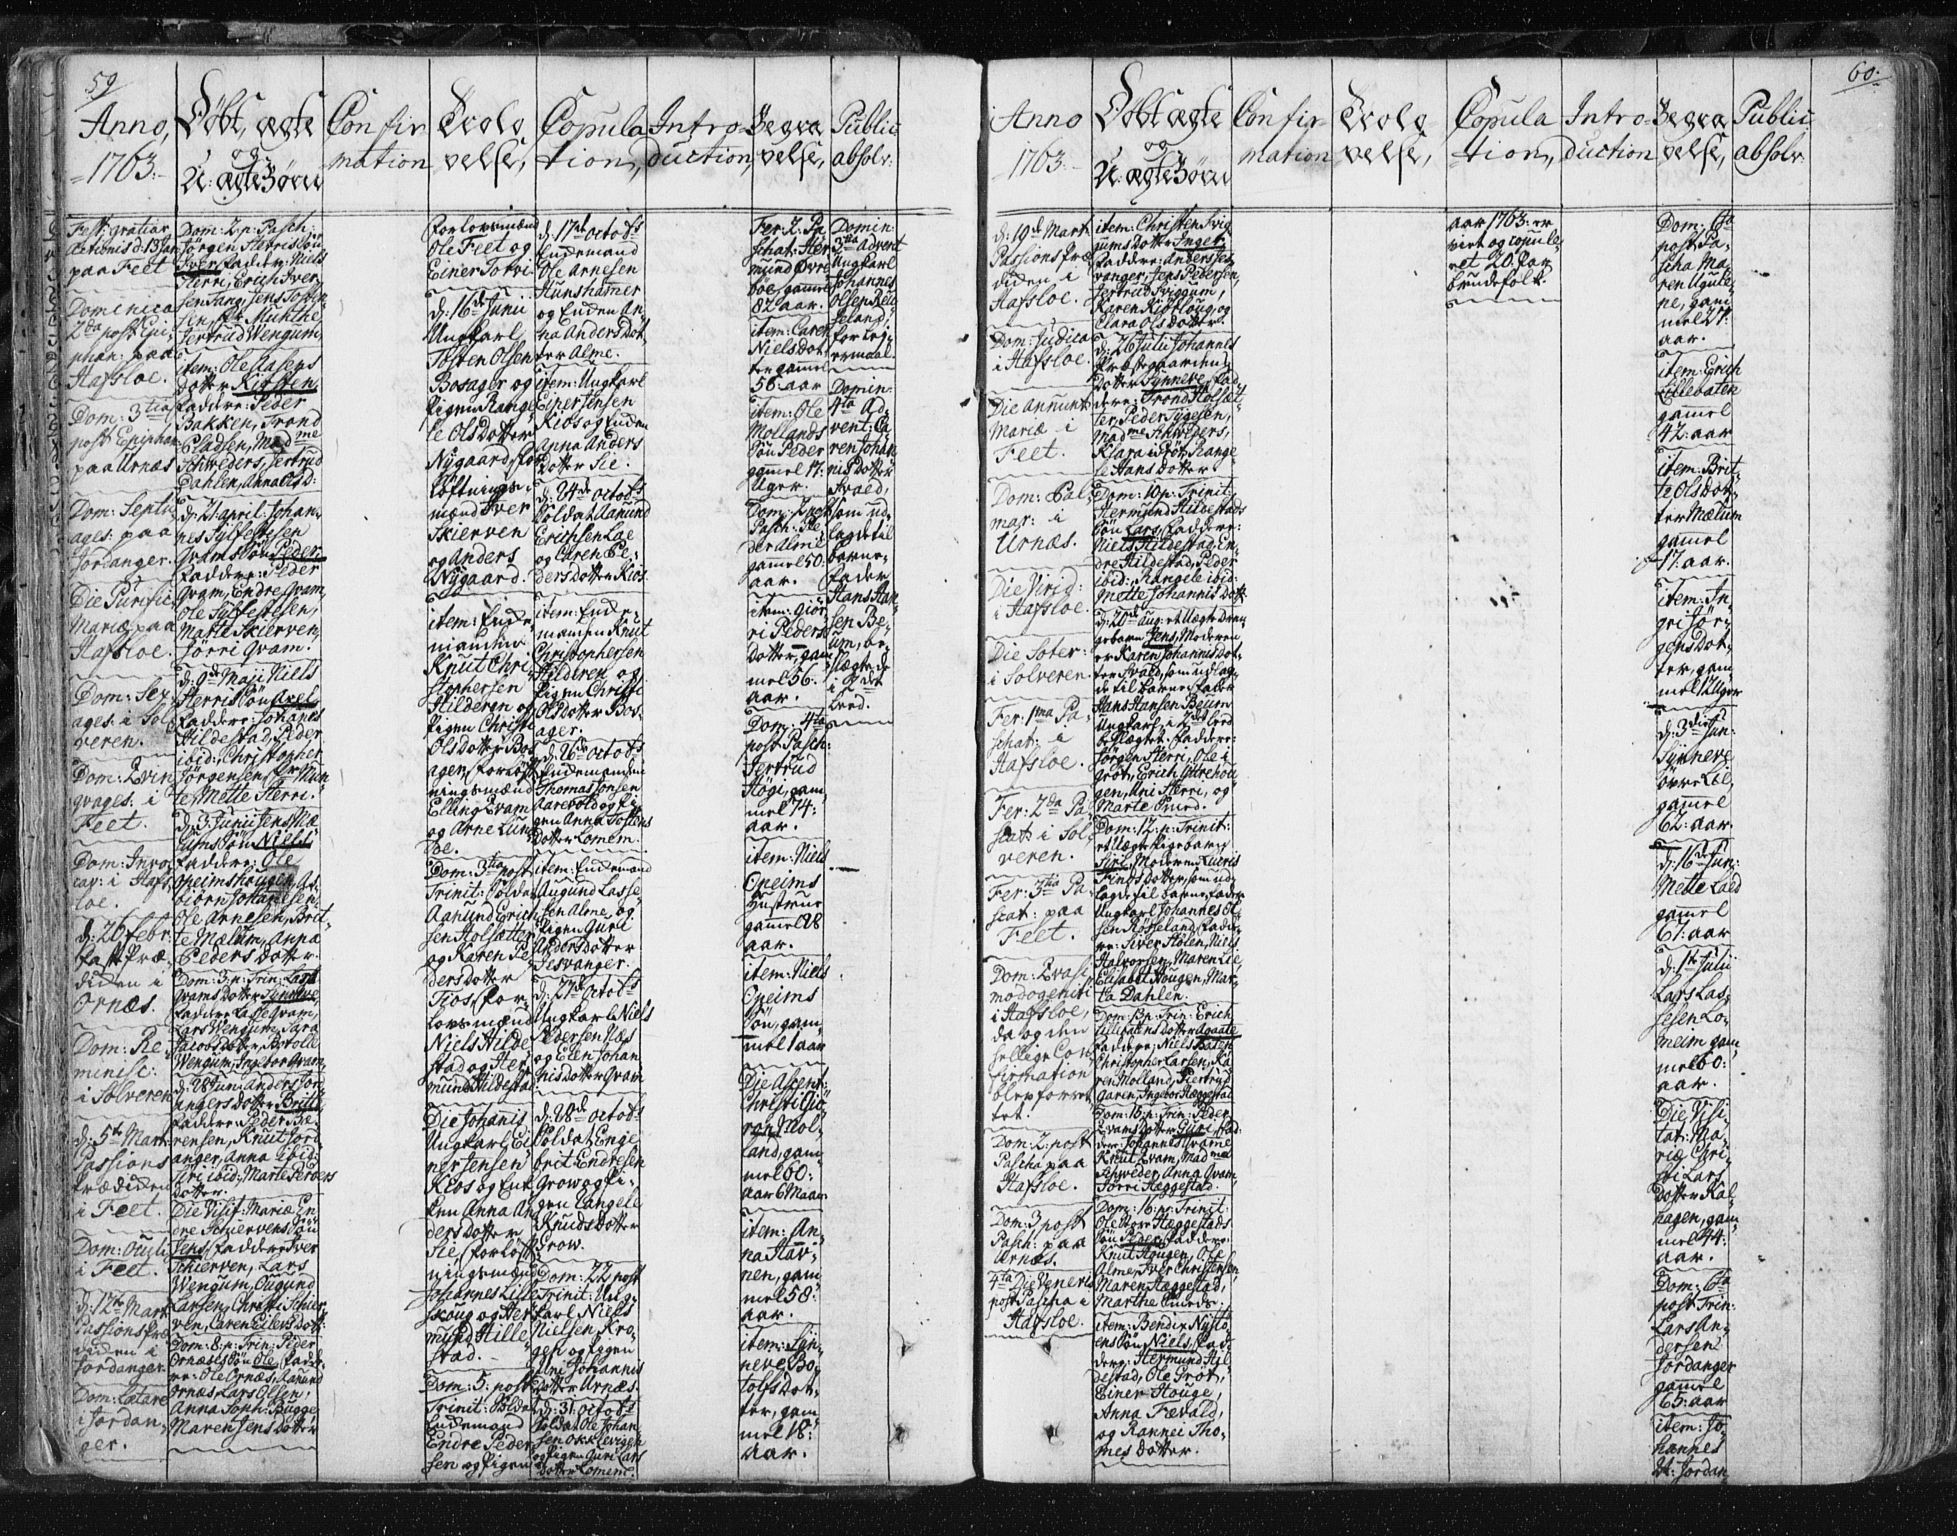 59
Anno,
1763.
Døbt, ægte
og
U: ægte Børn
Confir
mation
Trolo
velse,
Copula
tion,
Intro
duction,
Begra
velse,
Public:
absolv:
Fest: gratiar
actionis d: 13 Jan
paa Feet
Dominica
2da post Epi
phan: paa
Hafsloe.
Dom: 3tia
post Epiphan
paa Urnæs
Dom: Septu
ages: paa
Jordanger.
Die Purific:
Mariæ paa
Hafsloe.
Dom: Sex
ages: i Sol
veren.
Dom: Qvin
qvages: i
Feet.
Dom: Invo
cav: i Hafs
loe.
d: 26 febr:
faste Præ
diken i
Ornæs.
Dom: Re
minisc:
i Solveren
d: 5te Mart:
Passions
Prædiken
i Feet.
Dom: Ouli
i Feet.
d: 12te Mart
Passions Præ
diken i
Jordanger
Dom: Lætare
i Jordan
ger.
Dom: 2. p: Pasch:
Jørgen Herris Søn
Iver, Faddere: Niels
Herri, Erich Iver
sen
Gertrud Wengum,
item: Ole Aasens
Dotter Kirsten
Faddere: Peder
Bakken, Trond
Eladsen, Madme
Schweders, Gertrud
Dahlen, Anna Ols D:
d: 21 april: Johan
nes Sylfestesen
Qvams Søn Peder
Faddere: Peder
Qvam, Endre Qvam,
Ole Sylfestesen,
Marte Skierven,
Sørri Qvam.
d: 9de Maji Niels
Herris Søn Axel
Faddere: Johanes
Hildestad, Peder
ibid:, Christopher
Jørgensen,
Mette Herri.
d: 3. Junii Jens
Søn Niels
Faddere: Ole
Opeimshougen,
biørn Johannesen,
Ole Arnesen, Brit
te Mælum, Anna
Peders Dotter
Dom: 3. p: Trin: Lasse
Qvams Dotter Synneve
Faddere Lasse Qvam,
Lars Wengum, Sara
Jacobs Dotter, Botolle
Wengum, Ingebor Qvam,
d: 28 Jun: Anders Jord
angers Dotter Britte
Faddere: Peder
rensen, Knut Jord
anger, Anna ibid:
Siri ibid:, Marte Peders
Dotter.
Die Visit: Mariæ En
dre Schiervens Søn
Jens, Faddere: Iver
Schierven, Lars
Wengum, Ougund
Larsen, Christi Schier
ven, Karen Eilers Dott:
Dom: 8: p: Trin: Peder
Ornæses Søn Ole, Fadde
re: Ole Ornæs, Aamund
Ornæs, Lars Olsen,
Anna Soph: Bugge
Maren Jens Dotter
Forlovsmænd
Ole Feet og
Einer Torvi
d: 16de Junii
Ungkarl
Tosten Olsen
Bosager og
Pigen Range
le Ols Dotter
Nygaard, for
løftnings
mænd Iver
Skierven
og Anders
Nygaard.
item: Enke
manden
Knut Chri
stophersen
Hilderen og
Pigen Christi
Ols Dotter Bos
ager, forløft
nings mænd
Elling Qvam
og Arne Lund
boe.
Dom: 3tia post
Trinit: Soldat
Aamund Erich
sen Holsætter
og Karen Pe
ders Dotter
Tios, for
lovs mænd
Niels Hilde
stad og Her
mund Hildestad
Die Johanis
Ungkarl Ei
ner Jensen
Kios og En
ken Anna An
ders Dotter
Sie, forløft
nings mænd
Johannes Lille
skoug og Her
mund Hille
stad.
Dom: 5: post
Trinit: Soldat
Enkemand
Endre Peder
sen og Pigen
d: 17de octob:
Enkemand
Ole Arnesen
Hunshamer
og Enken An
na Anders Dot
ter Alme.
item: Ungkarl
Einer Jensen
Kios og Enken
Anna Anders
Dotter Sie.
d: 24de octob:
Soldat Aamund
Erichsen Lae
og Caren Pe
ders Dotter Kios
item: Enke
manden Knut
Christophersen
Hilderen og
Pigen Christi
Ols Dotter Bos
ager.
d: 26de octob:
Enkemanden
Thomas Jonsen
Aarevold og Pi
gen Anna Tostens
Dotter Lomem.
item: Enkemand
Augund Lasse
sen Alme, og
Pigen Guri
Anders Dotter
Jesvanger.
d: 27de octob:
Ungkarl Niels
Pedersen Næs
og Elen Johan
nis Dotter Qvam
d: 28de octob:
Soldat Enge
brit Endresen
Grow og Pi
gen Rangele
Knuds Dotter
Erow.
Dom: 22 post
Trinit: Ung
karl Niels
Nielsen Kro
gen og Pigen
Ani Johannis
Dotter Urnæs
d: 31. octob:
Soldat Ole Johan
sen Okklevigen
og Pigen Guri Lars
Dotter Lomem.
Fer: 2. Pa
schat: Her
mund Øvre
boe, gamel
82 aar.
item: Caren
Niels Dot
ter gamel
56: aar
item: Ole
Mollands
Søn Peder
gamel 17:
Uger.
Dom: 2 post
Pasch: Pe
der Almes
gamel 50:
aar.
item: Giør
ri Peders
Dotter, gam
mel 56.
aar.
Dom: 4ta
post Pasch:
Gertrud
Høgi, gam
mel 74:
aar.
item: Niels
Opeims
Hustrue
gamel 28
aar.
item: Niels
Opeims
Søn, gam
mel 1 aar
Die Ascens:
Christi Giø
ron Mol
land, gam
mel 60:
aar 6 Maan:
item: An
na Hav
nen, gam
mel 58:
aar.
item: Syn
neve Bo
tolfs Dot
ter, gam
mel 18:
aar.
Domin:
3tia advent
Ungkarl
Johannes
Olsen
seland
for lej
ermaal
Domin:
4ta Ad
vent: Ca
ren Johan
nis Dotter
Svald,
som ud
lagde til
barne
fader
Hans Han
sen Be
um, be
slægtede
i 2det
Leed.
60.
Anno
1763.
Døbt ægte
og
U: ægte Børn
Confir
mation
Trolo
velse,
Copula
tion,
Intro
duction
Begra
velse,
Public:
absolv:
d: 19de Mart
Passions Præ
diken i
Hafsloe.
Dom: Judica
i Hafsloe.
Die Annunt:
Mariæ i
Feet.
Dom: Pal
mar: i
Urnæs.
Die Virid:
i Hafsloe.
Die Soter:
i Solveren.
Fer: 1ma Pa
schat: i
Hafsloe.
Fer: 2da Pa
scat: i Sol
veren.
Fer: 3tia Pa
scat: paa
Feet.
Dom: Qvasi
modogeniti
i Hafsloe,
da og den
hellige Con
firmation
blef forret
tet.
Dom: 2: post
Pascha paa
Hafsloe.
Dom: 3 post
Pasch: paa
Urnæs.
4ta Die Veneris
post Pascha i
Hafsloe.
item: Christen Svig
gums Dotter Inger,
Faddere: Anders Jes
vanger, Jens Pedersen,
Gertrud Sviggum,
Karen Kirkhoug, og
Clara Ols Dotter.
d: 26 Julii Johannes
Præstegaardens
Dotter Synneve, Fad
dere: Trond Holsæt
ter, Peder Tygesen,
Madme Schweders,
Klara i Grøt, Range
le Hans Dotter
Dom: 10 p: Trinit:
Hermund Hildestads
Søn Lars, Faddere:
Niels Hildestad, En
dre Hildestad, Peder
ibid:, Rangele ibid:
Mette Johannis Dott:
d: 20de aug: et Uægte Dren
gebarn Jens, Moderen
er Karen Johannis Dot
ter Svald, som udlag
de til barnefader
Hans Hansen Beum
Ungkarl, i 2det Leed
beslægtet. Faddere:
Jørgen Herri, Ole i
Grøt, Erich Gurehou
gen, Ani Herri, og
Marte Qvird.
Dom: 12. p: Trinit:
et Uægte Pigebarn
Siri, Moderen Sueris
Finds Dotter, som ud
lagde til barnefader
Ungkarl Johannes Ol
sen Røsseland, Fadde
re: Siver Hølen, Niels
Halvorsen, Maren Lie,
Elisabet Hougen, Mar
ta Dahlen.
Dom: 13 p: Trin: Erich
Lillebatens Dotter Agaate
Faddere: Niels Baten
Christopher Larsen, Ka
ren Molland, Giertrud
Aaren, Ingebor Hæggestad
Dom: 16: p: Trin: Peder
Qvams Dotter Guri, Fad
dere: Johannes Qvame
Knut Qvam, Madme
Schweder, Anna Qvam,
Sørri Hæggestad.
Dom: 16: p: Trinit:
Ole Store Hæggestads
Søn Peder, Faddere:
Knut Hougen, Ole
Alme, Iver Christensen,
Maren Hæggestad,
Marthe Qvirds.
item: Bendix Nystø
ens Søn Niels, Fad
dere: Hermund Hil
destad, Ole Grøt,
Einer Houge,
Anna Fævald,
og Rannei Tho
mes Dotter.
aar 1763: er
viet og copule
ret 20. Par
brudefolk.
Dom: 6ta
post Pa
scha Ma
ren Ugule
ne, gam
mel 27.
aar.
item: Erich
Lillebaten
gamel
42: aar
item: Brit
te Ols Dot
ter Mælum
gamel
17: aar.
item: In
gri Jør
gens Dot
ter, gam
mel 12 Uger
d: 3die Jun:
Synneve
Øvre Lae,
gamel
62: aar.
d: 16de Jun:
Mette Lald
gamel
61: aar
d: 1ste Julii
Lars Las
sesen Lo
meim gam
mel 60:
aar.
Die Visi
tat: Ma
riæ Chri
sti Lars
Dotter Kal
hagen, gam
mel 44:
aar.
Dom: 6ta
post Trin:
Lars An
dersen
Jordanger
gamel
65: aar
item: Jo
hannes
Ut: Jordan